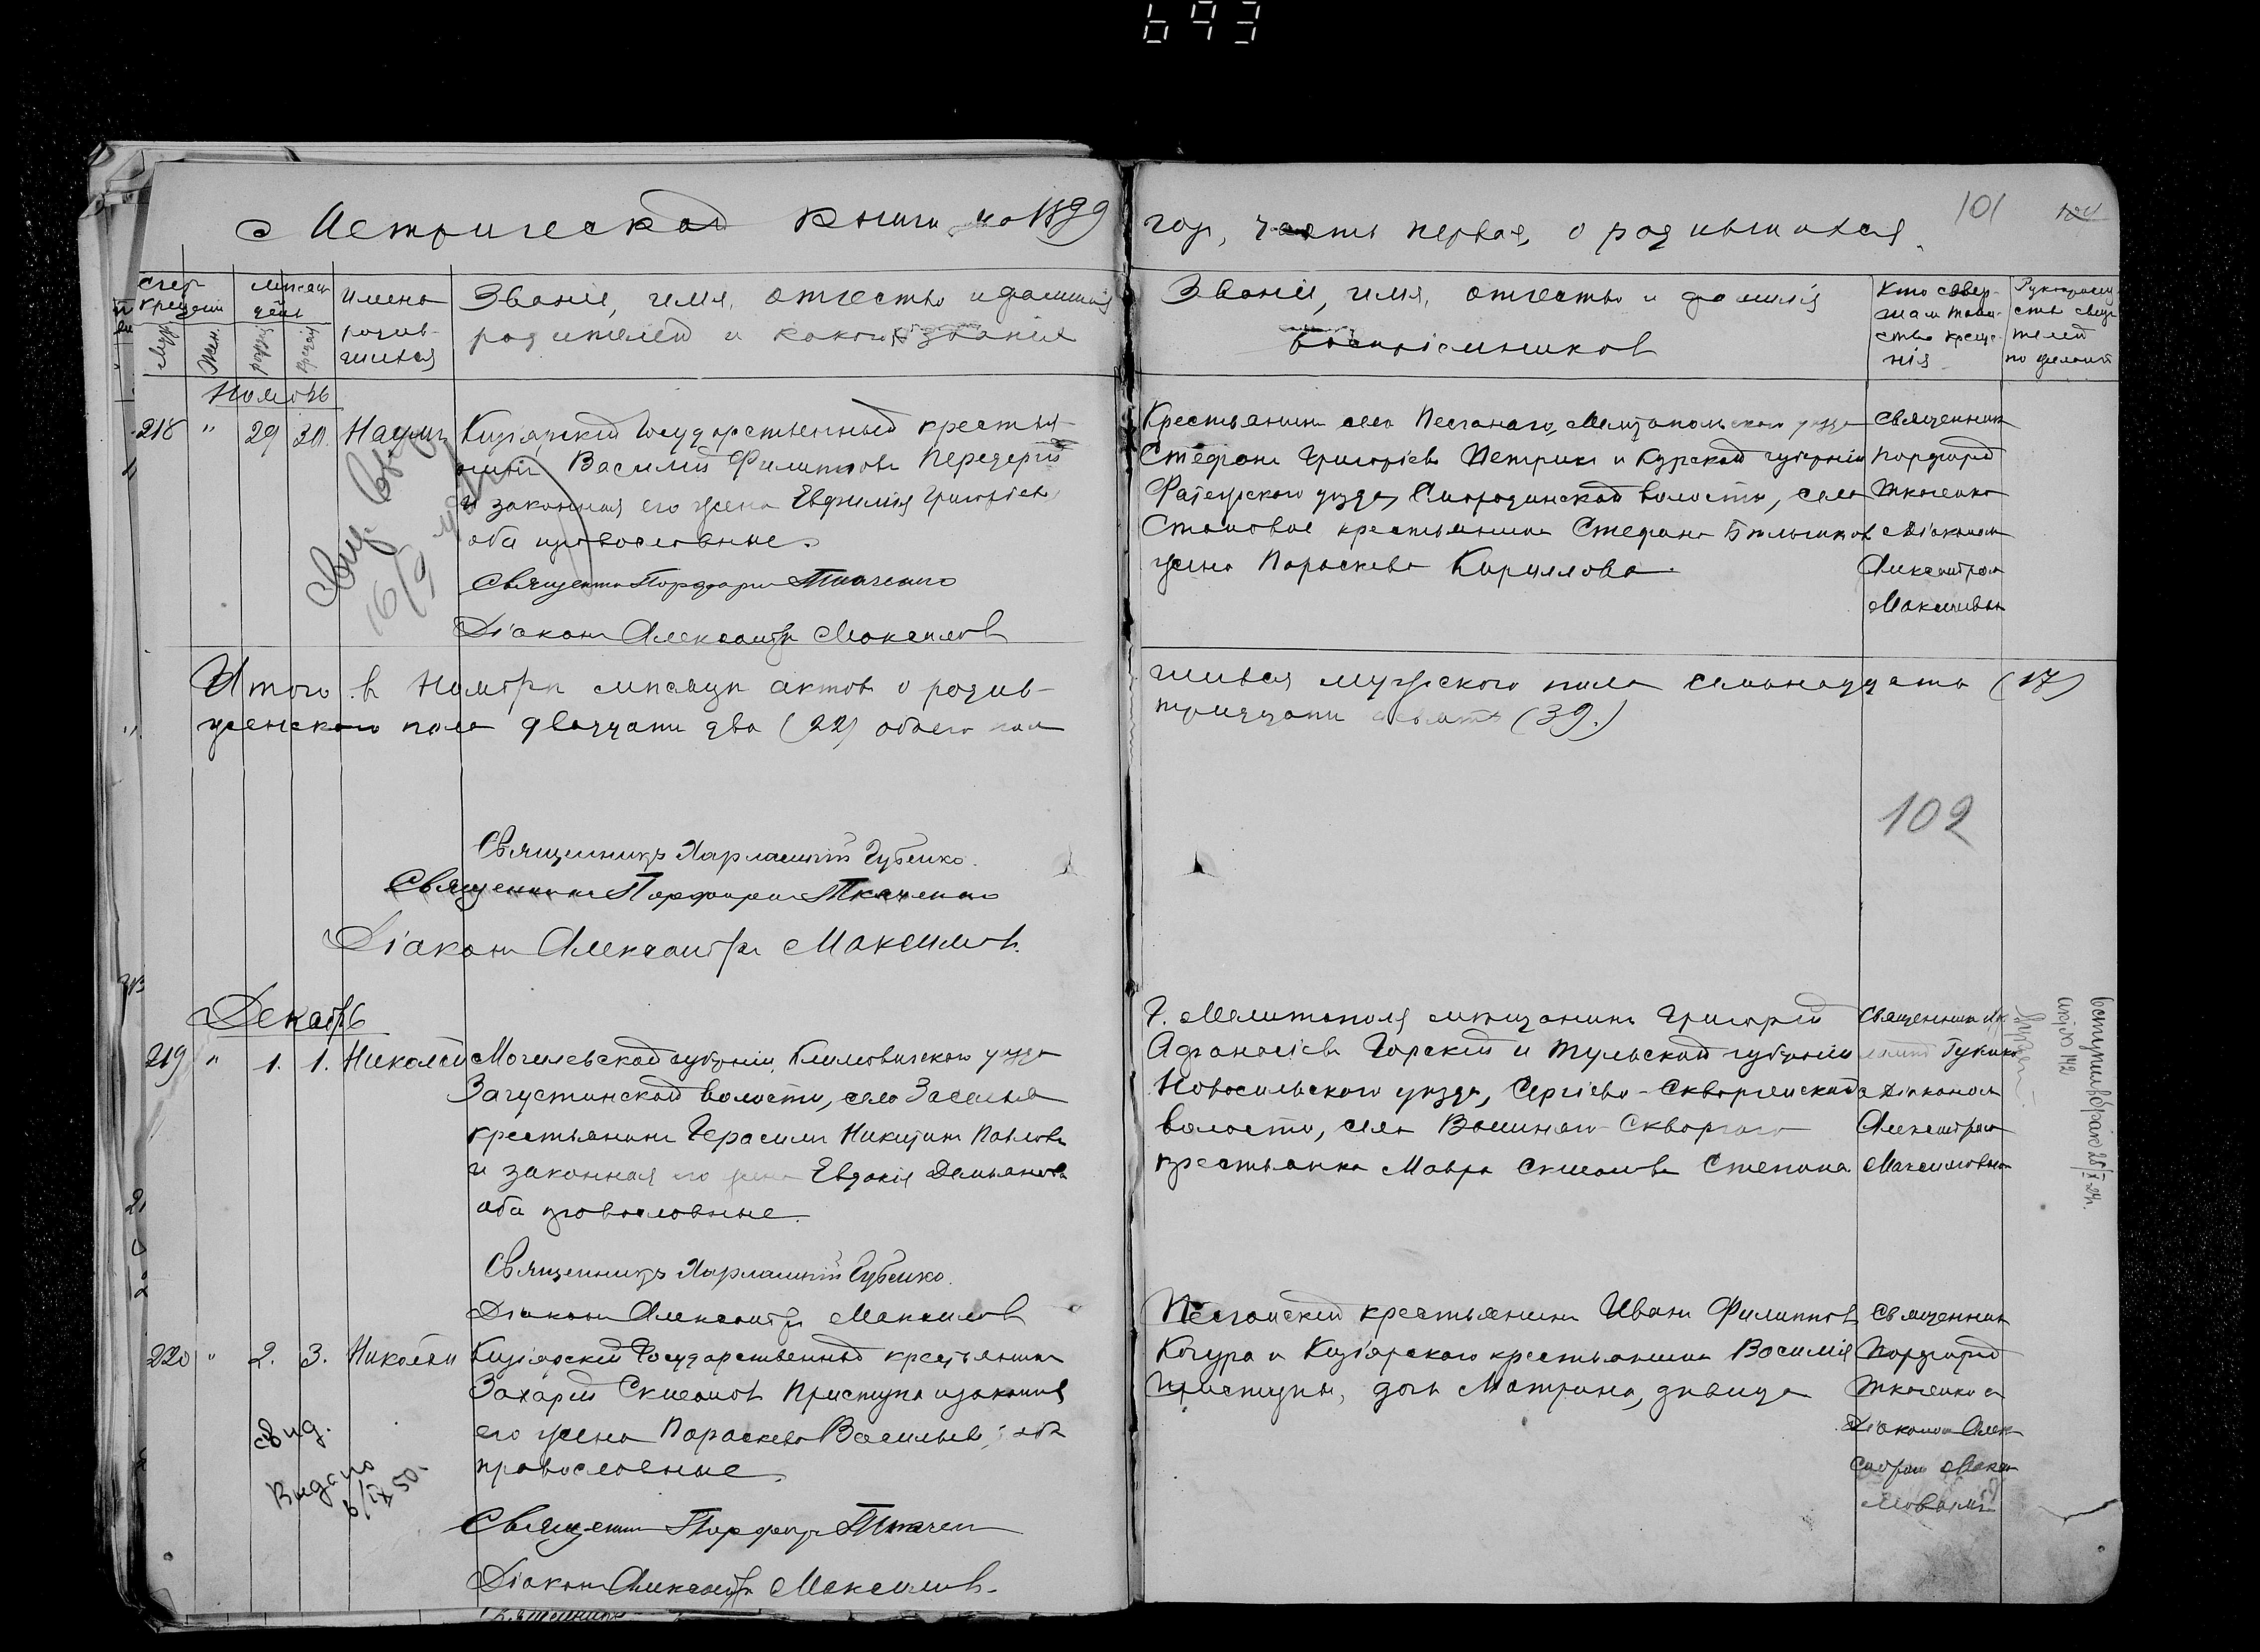 693
Метрической книги на 1899
год, часть первая, о родившихся.
101
104
Счет крещен.
Муж.
Жен.
Месяц день
рожден.
крещен.
Имена родив-
шихся
Званіе, имя, отчество и фамилія
родителей и какого званія
Званіе, имя, отчество и фамилія
воспріемниковъ
Кто совер-
шал таин-
ство креще-
нія
Рукоприклад
ство свид
телей
по желанію
Ноябрь
218 " 29 30. Наумъ
Кизіярскій Государственный крестья-
нинъ Василій Филиппов Передерій
и законная его жена Евфимія Григоріева
оба православные.
Священник Порфирій Ткаченко
Діаконъ Александръ Максимов
Крестьянин села Песчанаго, Мелитопольскаго уезда
Стефанъ Григорьевъ Петрик и Курской губерніи
волости, села
Становое крестьянина Стефана
жена Параскева Кириллова.
Священник
Порфирій
Ткаченко
с Діаконом
Александром
Максимовым
16/9
Итого в Ноябре месяце актов о родив-
шихся мужескаго пола семнадцать (17)
женскаго пола двадцать два (22) обоего пола
тридцать девять (39.)
102
Священникъ Харлампій Губенко.
Священник Порфирій Ткаченко
Діаконъ Александръ Максимов.
Декабрь
219 " 1. 1. Николай
Могилевской губерніи, Климовичскаго уезда
Загустинской волости, село Заселья
крестьянин Герасим Никитин Павлов
и законная его жена Евдокія Демьянова
оба православные.
Священникъ Харлампій Губенко.
Діаконъ Александръ Максимов
Г. Мелитополя мещанинъ Григорій
Афанасіевъ Горскій и Тульской губерніи
Новосильскаго уезда, Сергіево-Скворченской
волости, села Скворчаго
крестьянка Мавра Симонова Степина
Священник Хар
лампій Губенко
с Діаконом
Александром
Максимовым
вступив в брак 25/X-24г.
акт № 142
220 " 2. 3. Николай
Кизіярскій Государственный крестьянин
Захарій Симонов Приступа и законная
его жена Параскева Васильева; оба
православные.
Священник Порфирій Ткачен
Діаконъ Александръ Максимов.
свид.
Видано
6/IX 50.
Песчанский крестьянинъ Иванъ Филиппов
Кочура и Кизіярскаго крестьянина Василія
Приступы, дочь Матрона, девица
Священник
Порфирій
Ткаченко с
Діаконом Алек
сандром Макси
мовымъ